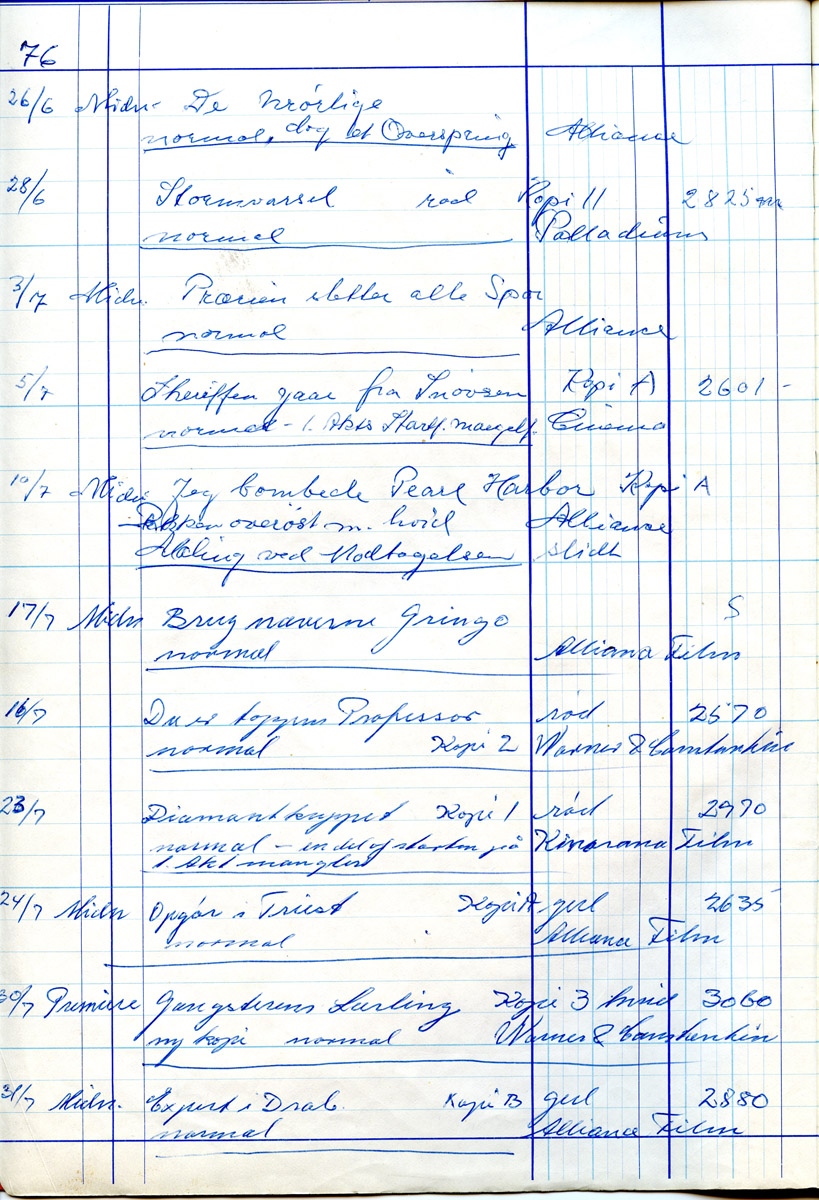 76
26/6 Midn- De Utrolige
normal, dog et Overspring Alliance
28/6 Stormvarsel rød Kopi II 2825 mtr
normal Palladium
3/7 Midn. Prærien sletter alle Spor
normal Alliance
5/7 Sheriffen gaar fra Snøvsen Kopi A 2601 -
normal - 1. Akts Startf. mangelf. Cinema
10/7 Midn Jeg bombede Pearl Harbor Kopi A
overøst m. hvid Alliance
ved Modtagelsen slidt
17/7 Midn Brug næverne Gringo S
normal Alliance Film
16/7 Du er toppen Professor rød 2570
normal Kopi 2 Warner & Constantin
23/7 Diamantkuppet Kopi 1 rød 2970
normal - en del af starten på Kinorama Film
1 Akt mangler
24/7 Midn Opgør i Triest Kopi A gul 2635
normal Alliance Film
30/7 Premiere Gangsterens Lærling Kopi 3 hvid 3060
ny kopi normal Warner & Constantin
31/7 Midn. Expert i Drab. Kopi B gul 2880
normal Alliance Film